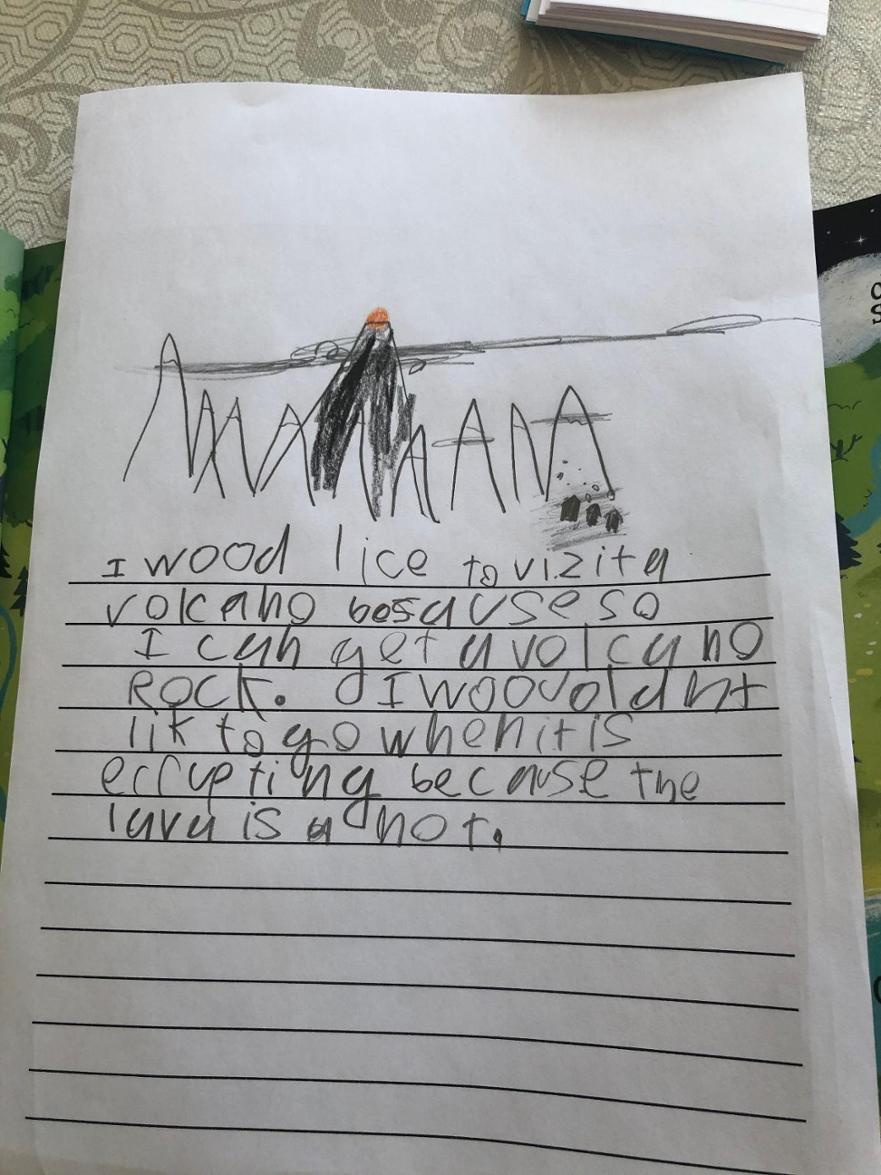 I wood lice to vizit a
volcano besause so
I can get a volcano
Rock. I woovoldnt
lik to go when it is
errupting because the
lava is a hot.